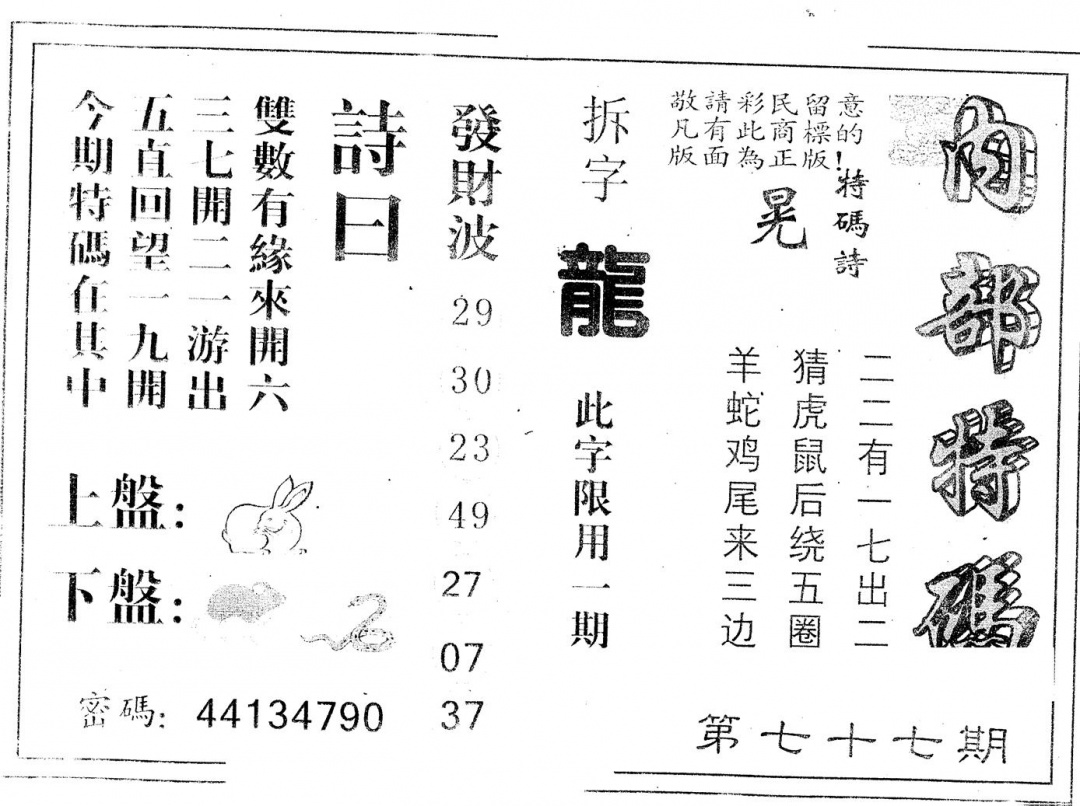 内部特碼
敬請彩民留意
凡有此商標的
版面為正版!
特碼詩
晃
二二有一七出二
猜虎鼠后绕五圈
羊蛇鸡尾来三边
第七十七期
拆字
龍
此字限用一期
發財波
29
30
23
49
27
07
37
詩曰
雙數有緣來開六
三七開二一游出
五直回望一九開
今期特碼在其中
上盤:
下盤:
密碼: 44134790